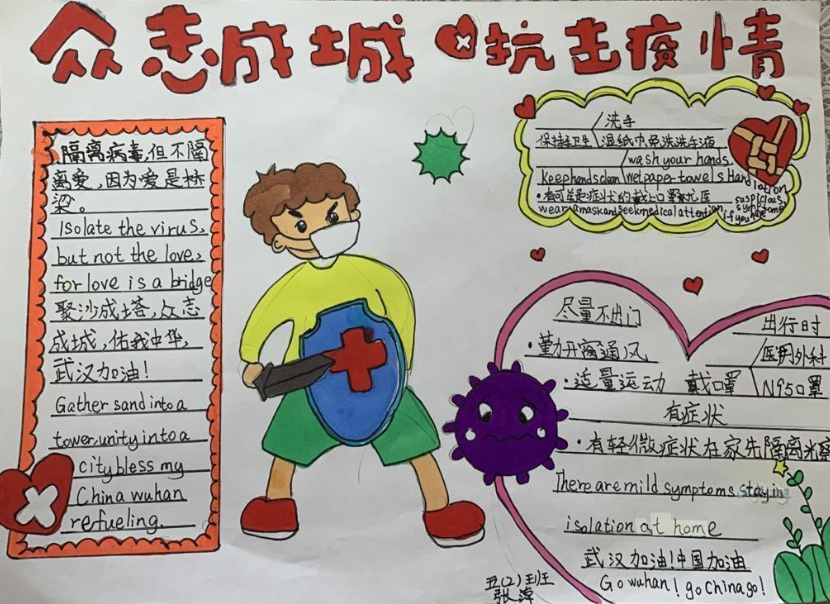 众志成城 抗击疫情
隔离病毒,但不隔
离爱,因为爱是桥
梁。
Isolate the virus,
but not the love,
for love is a bridge
聚沙成塔,众志
成城,佑我中华,
武汉加油!
Gather sand into a
tower.unity into a
city bless my
China wuhan
refueling.
洗手
保持手卫生 湿纸巾免洗洗手液
wash your hands
Keep hands clean Wet paper towels Hand lotion
wear a mask and seek medical attention if you have
suspicious
symptoms
尽量不出门
·勤开窗通风
·适量运动
出行时
医用外科
戴口罩 N95口罩
有症状
·有轻微症状在家先隔离观察
There are mild symptoms stay in
isolation at home
武汉加油!中国加油
Go wuhan! go China go!
五(2)班